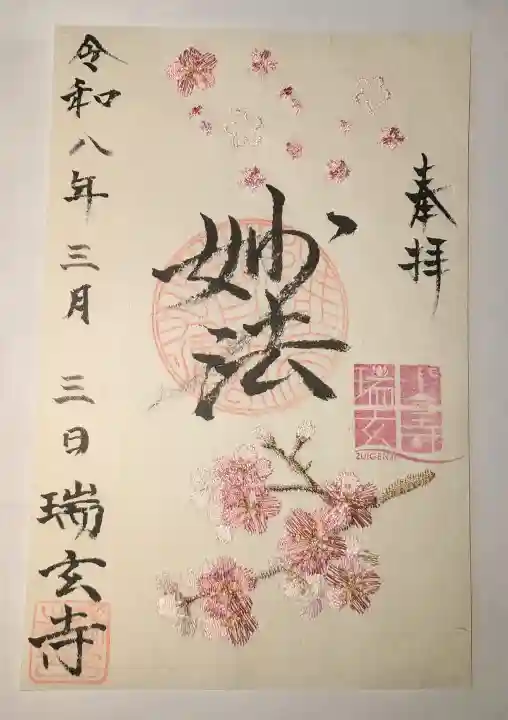 奉拝
妙法
瑞玄
ZUIGENJI
令和八年三月三日
瑞玄寺